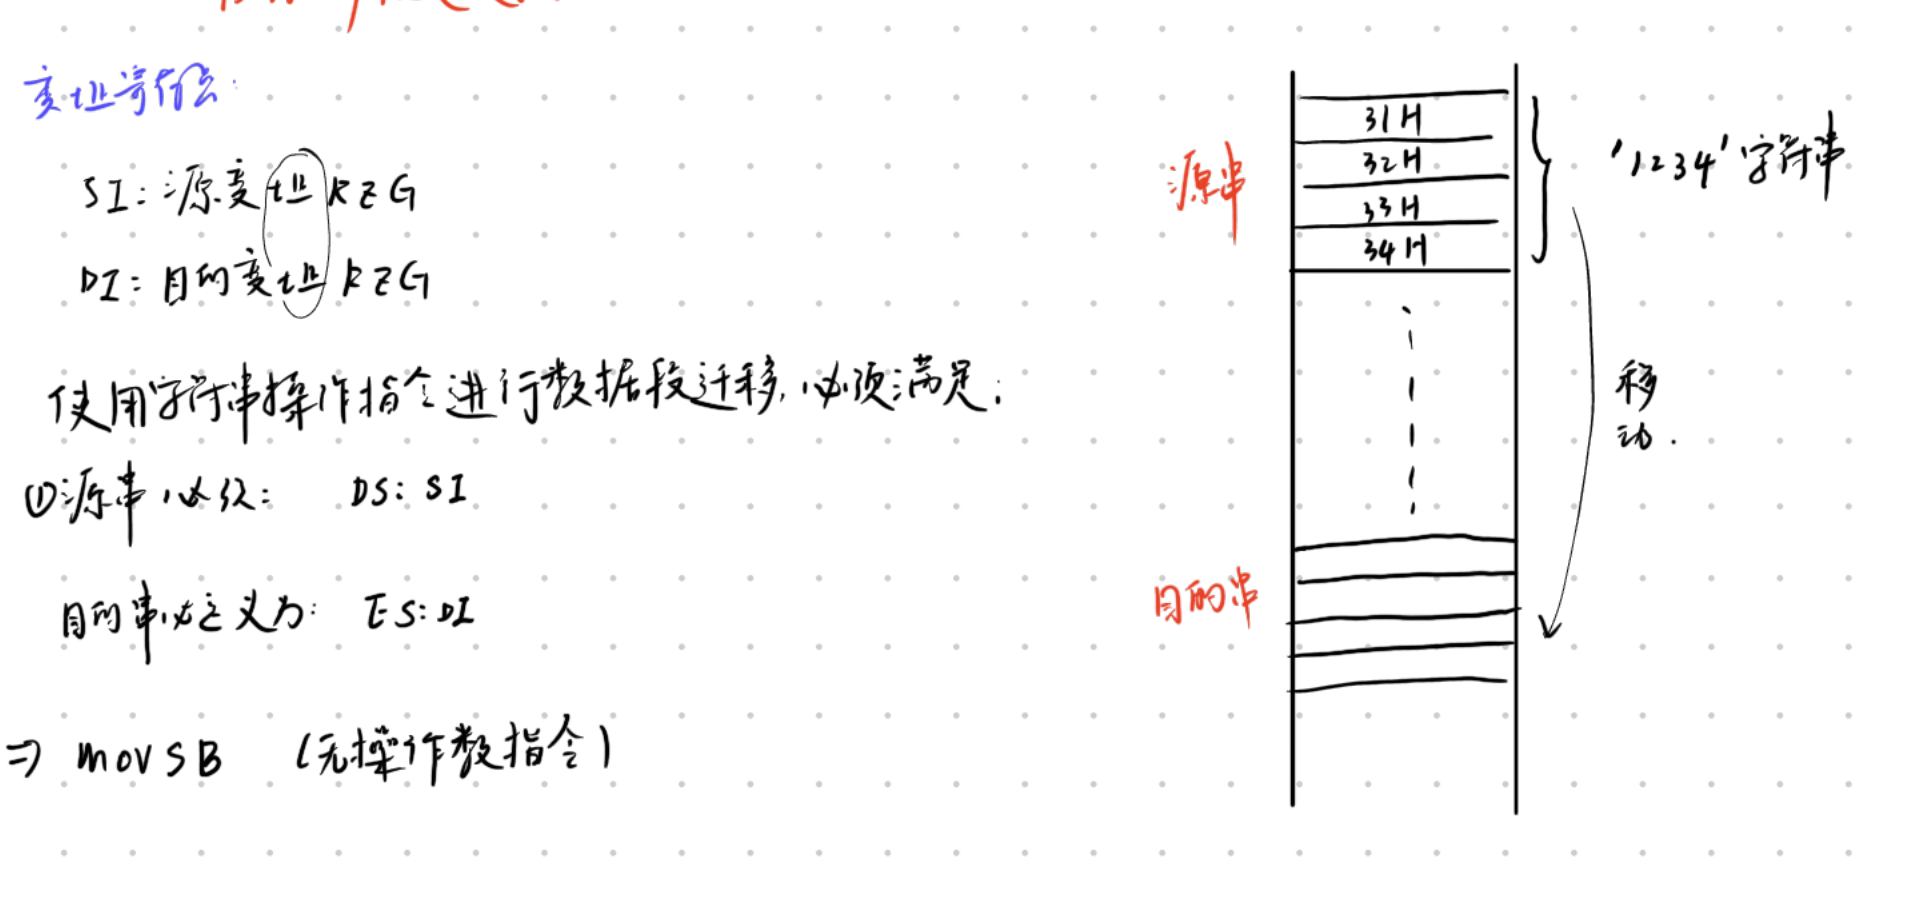 变址寄存器:
SI: 源变址REG
DI: 目的变址REG
使用字符串操作指令进行数据段迁移,必须满足:
①源串必须: DS: SI
目的串必定义为: ES: DI
⇒ MOVSB (无操作数指令)
源串
31H
32H
33H
34H
'1234'字符串
移动.
目的串